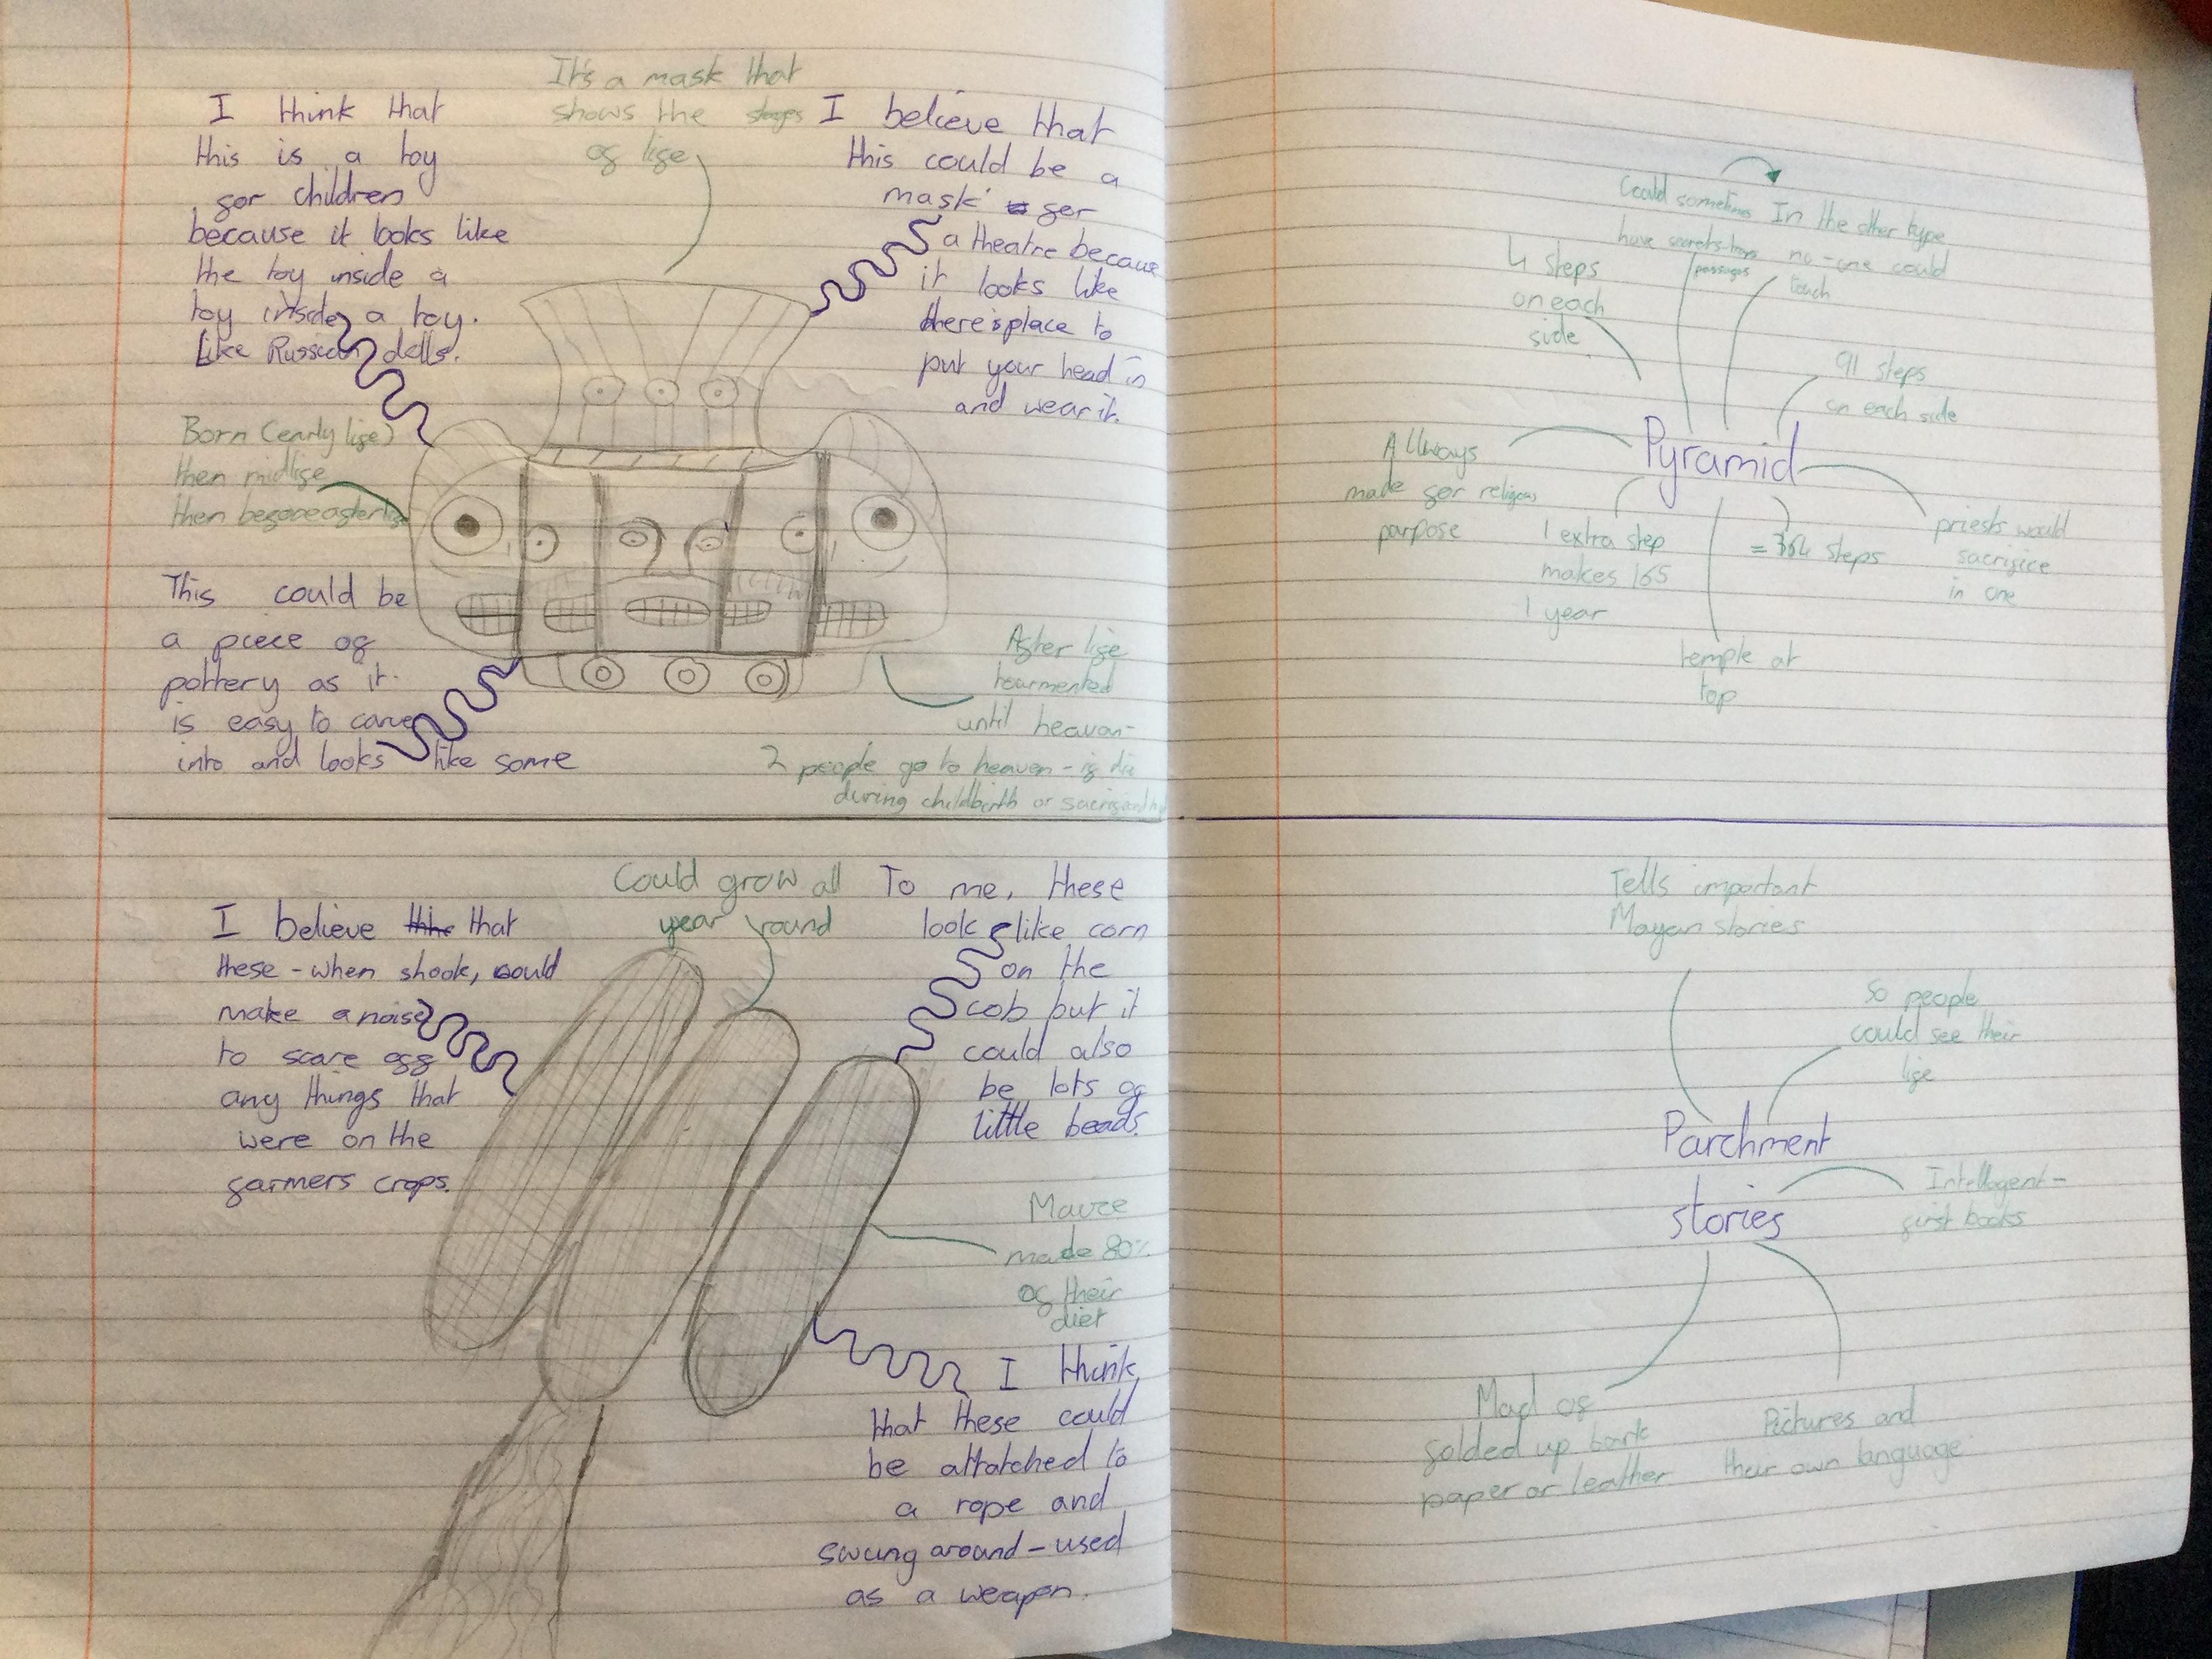 It's a mask that
shows the stages
of life
I think that
this is a toy
for children
because it looks like
the toy inside a
toy inside a toy.
Like Russian dolls.
I believe that
this could be a
mask for
a theatre because
it looks like
there's place to
put your head in
and wear it.
Born (early life)
then midlife
then before afterlife
This could be
a piece of
pottery as it
is easy to carve
into and looks like some
After life
tourmented
until heavan-
2 people go to heaven - if die
during childbirth or
Could grow all
year round
I believe that
these - when shook, could
make a noise
to scare off
any things that
were on the
farmers crops.
To me, these
look like corn
on the
cob but it
could also
be lots of
little beads.
Maize
made 80%
of their
diet
I think
that these could
be attatched to
a rope and
swung around - used
as a weapon.
Could sometimes
have secrets
passages
In the other type
no-one could
touch
4 steps
on each
side
91 steps
on each side
Allways
made for religous
purpose
Pyramid
1 extra step
makes 165
1 year
= 364 steps
priests would
sacrifice
in one
temple at
top
Tells important
Mayan stories
So people
could see their
life
Parchment
stories
Intellagent-
first books
Mad of
folded up bark
paper or leather
Pictures and
their own language